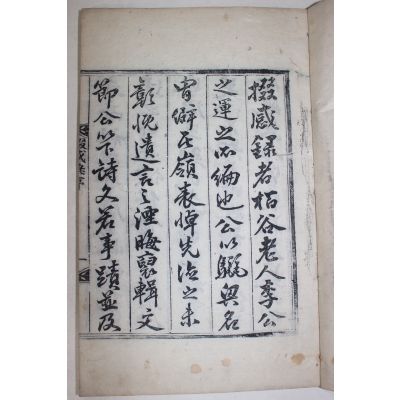 掇感錄者栢谷老人李公
之運之所編也公以驪興名
胄僻居嶺表悼先德之未
彰慨遺言之湮晦裒輯文
節公以下詩文若事蹟並及
掇感錄序
一